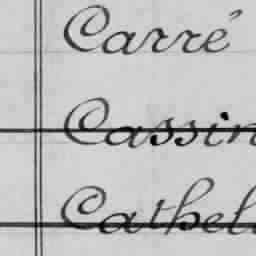 Carré
Cassin
Cathel